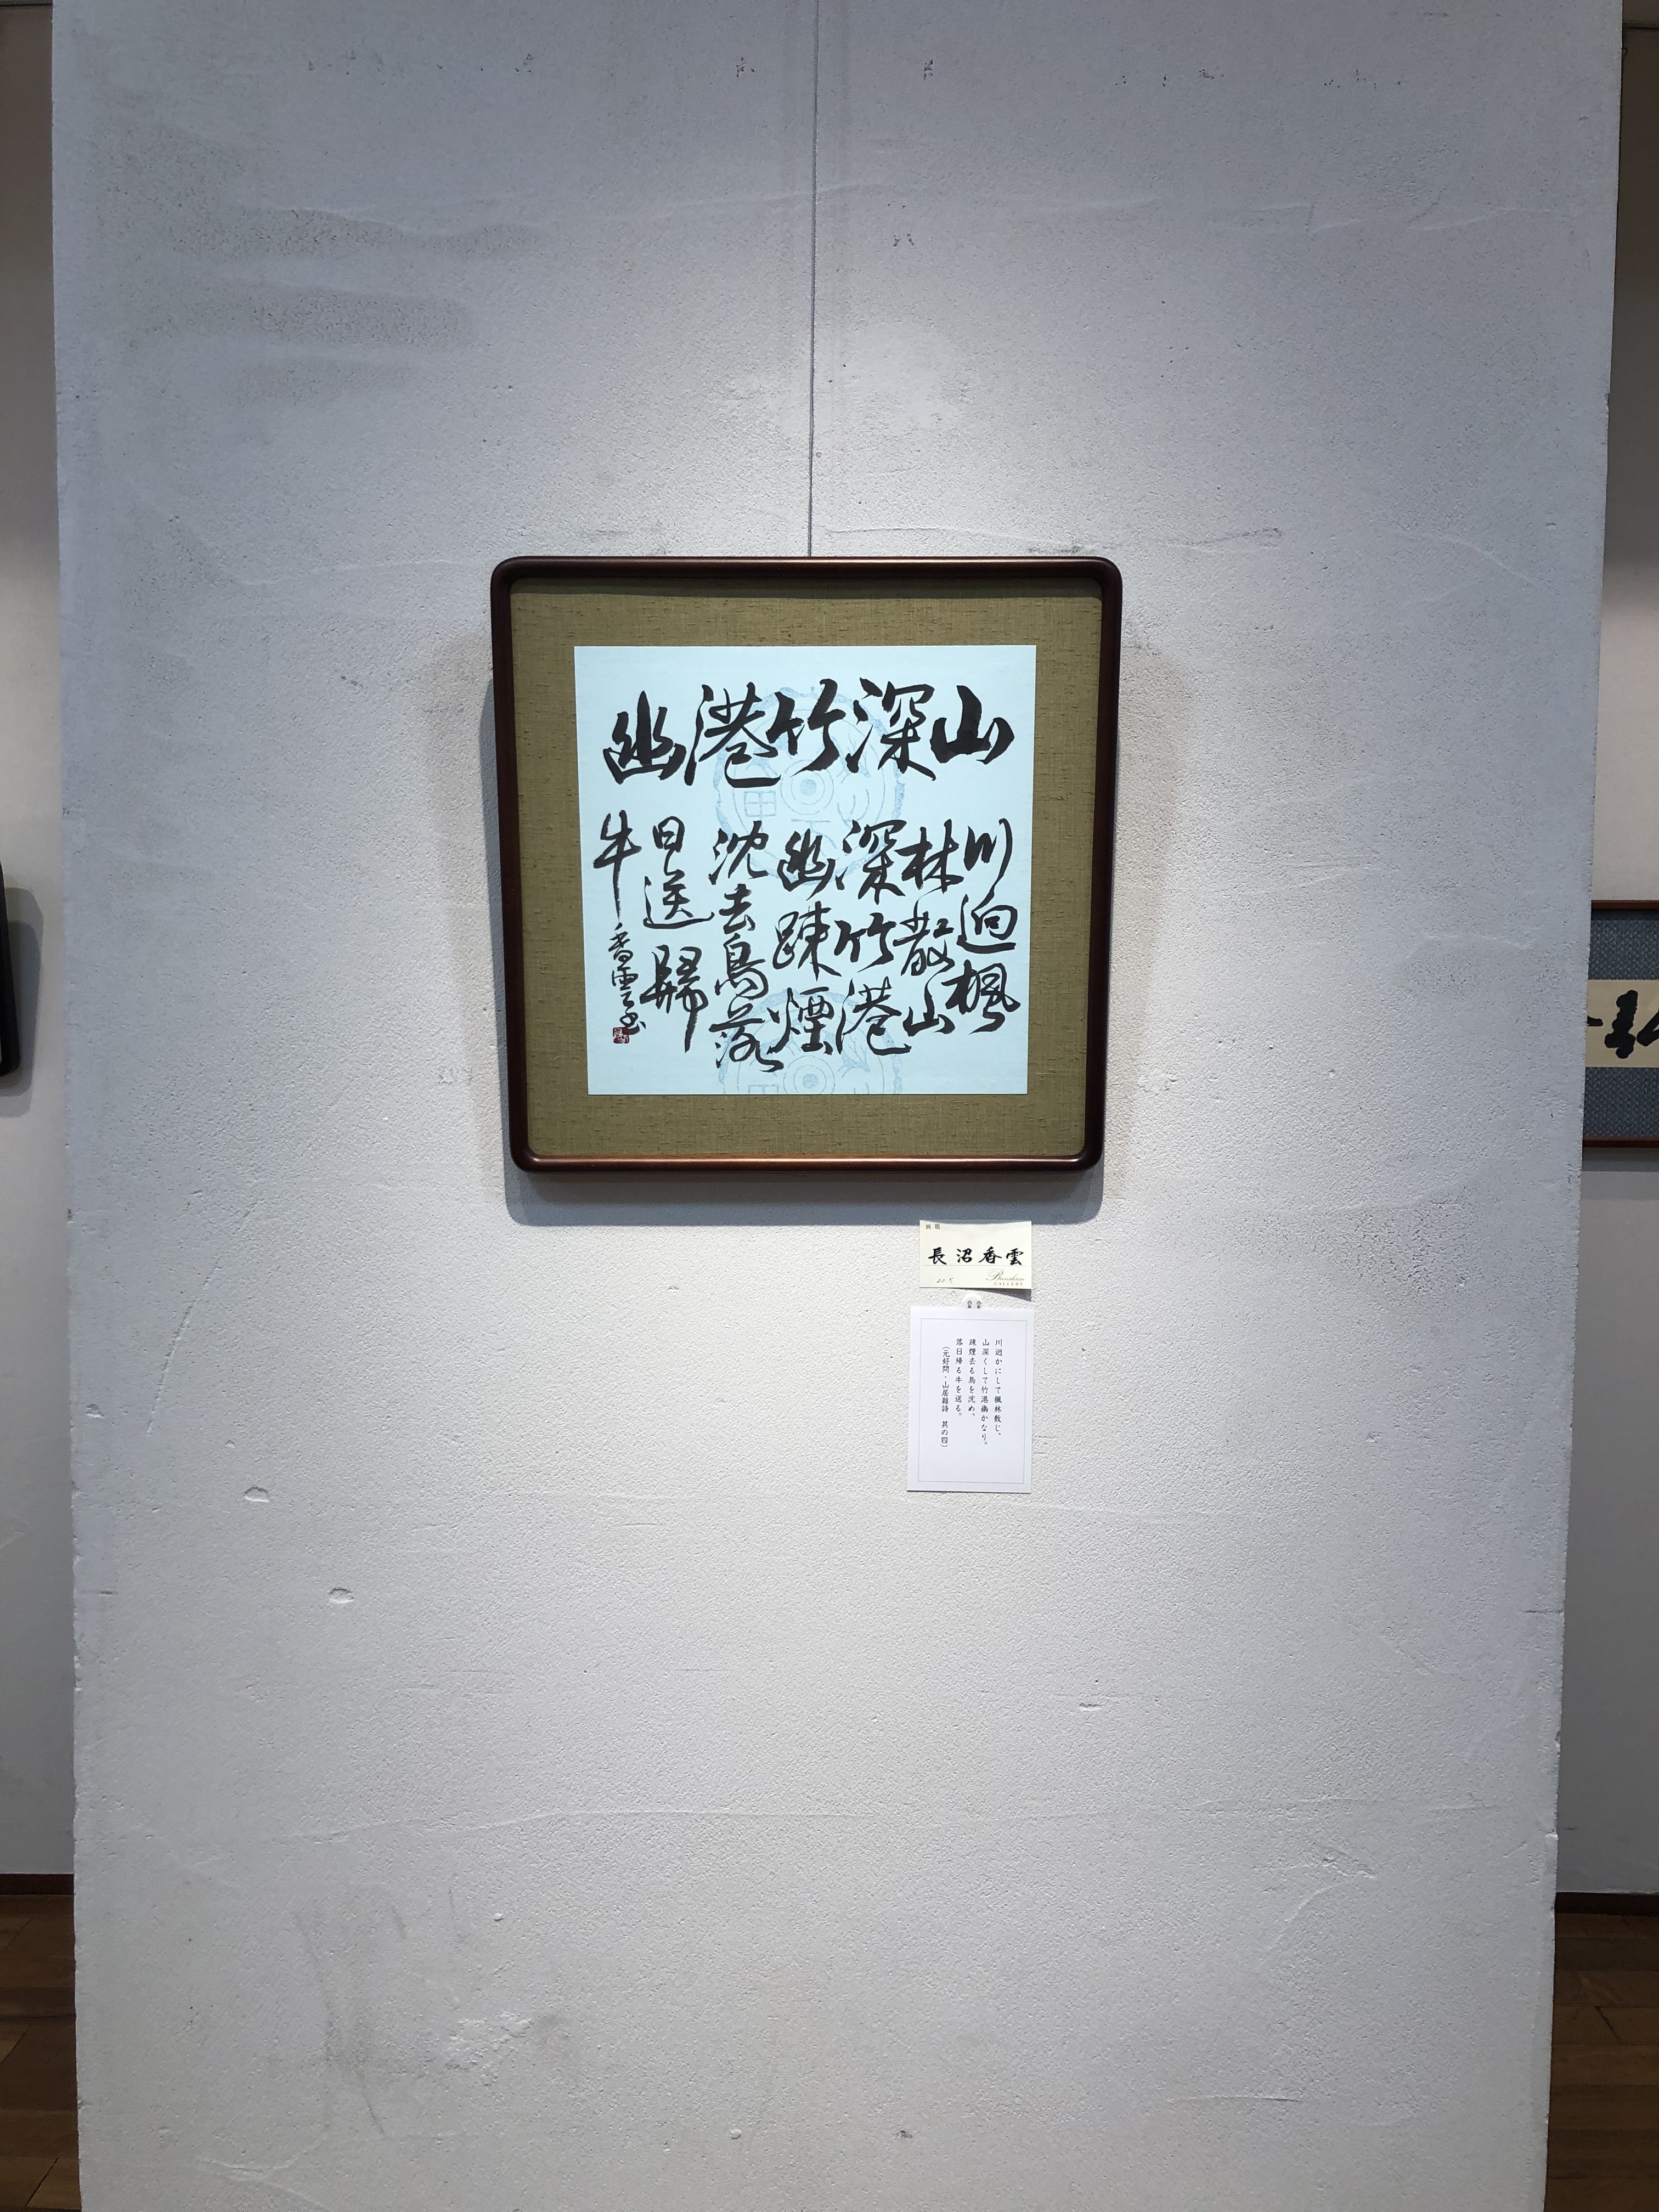 山深竹港幽
川迥楓
林散山
深竹港
幽疎煙
沈去鳥落
日送歸
牛
香雲書
長沼香雲
Bunshun
GALLERY
川迥かにして楓林散じ、
山深くして竹港幽かなり。
疎煙去る鳥を沈め、
落日帰る牛を送る。
(元好問・山居雜詩 其の四)